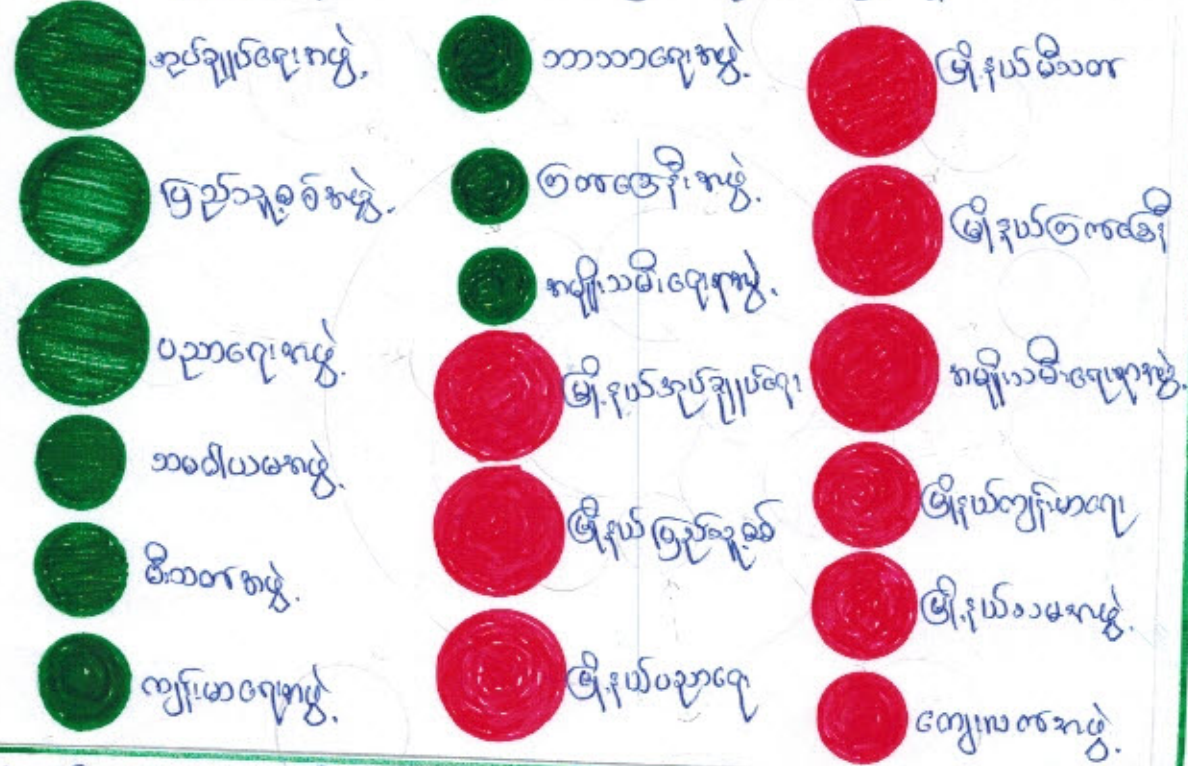 အုပ်ချုပ်ရေးအဖွဲ့
ပြည်သူ့စစ်အဖွဲ့
ပညာရေးအဖွဲ့
သမဝါယမအဖွဲ့
မီးသတ်အဖွဲ့
ကျန်းမာရေးအဖွဲ့
ဘာသာရေးအဖွဲ့
ကြက်ခြေနီအဖွဲ့
အမျိုးသမီးရေးရာအဖွဲ့
မြို့နယ်အုပ်ချုပ်ရေး
မြို့နယ်ပြည်သူ့စစ်
မြို့နယ်ပညာရေး
မြို့နယ်မီးသတ်
မြို့နယ်ကြက်ခြေနီ
အမျိုးသမီးရေးရာအဖွဲ့
မြို့နယ်ကျန်းမာရေး
မြို့နယ်သမအဖွဲ့
ကျေးလက်အဖွဲ့